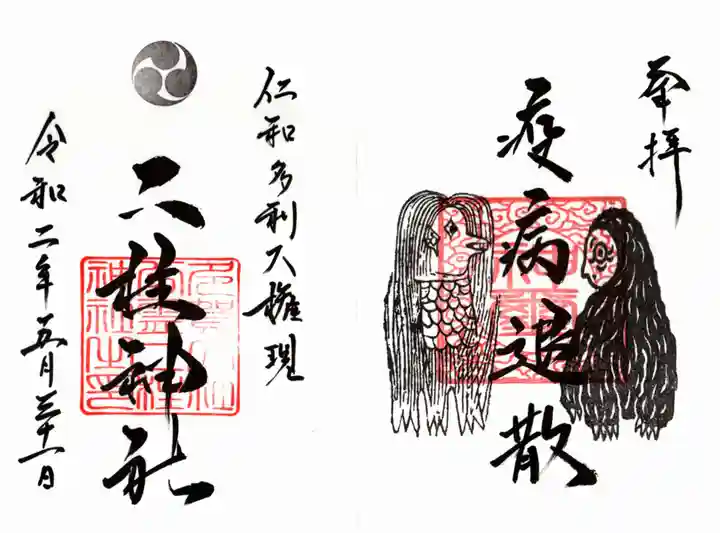 奉拝
疫病退散
仁和多利大権現
二柱神社
令和二年五月三十一日